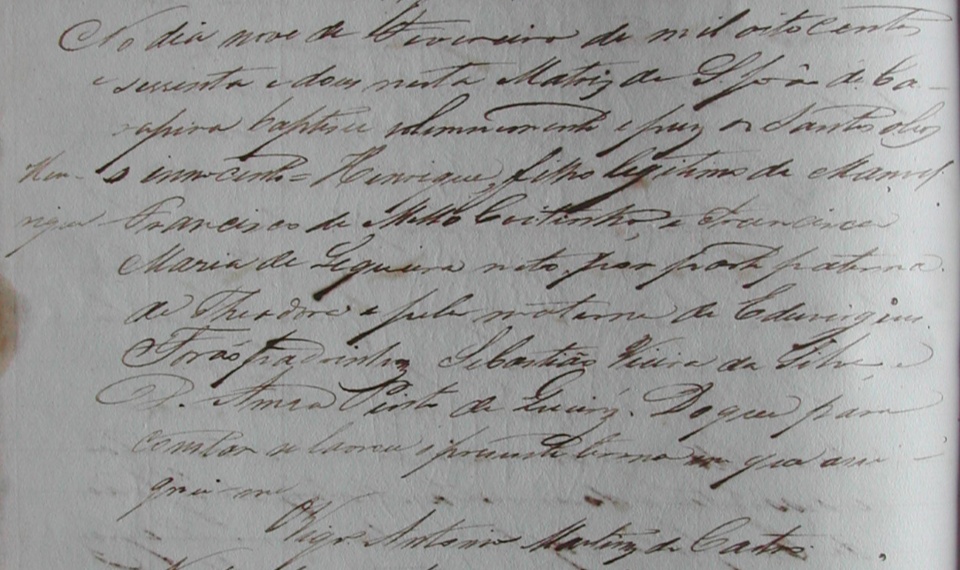 No dia nove de Fevereiro de mil oito centos
e sessenta e dous nesta Matriz de S. João de Ca-
rapina baptisei solemnemente e puz os Santos oleos
Hen- o innocente = Henrique, filho legitimo de Manoel
rique Francisco de Mello Coitinho, e Francisca
Maria de Sequeira neto por parte paterna
de Theodora e pela materna de Eduvirgens
Forão padrinhos Sebastião Vieira da Silva, e
D. Anna Pinto de Queiroz. Do que para
constar se lavrou o presente termo em que assi-
gnei-me
Vigr.o Antonio Martins de Castro